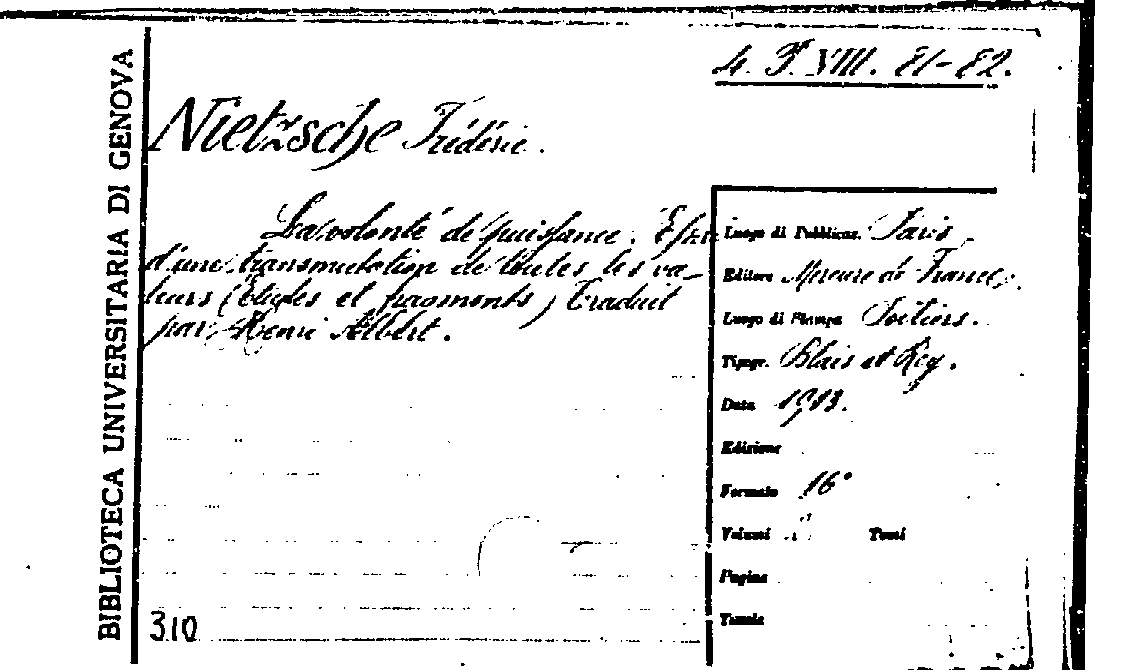 BIBLIOTECA UNIVERSITARIA DI GENOVA
4. F. VIII. 81-82.
Nietzsche Frédéric.
La volonté de puissance. Essai
d'une transmutation de toutes les va-
leurs (Etudes et fragments) Traduit
par Henri Albert.
Luogo di Pubblicaz. Paris
Editore Mercure de France.
Luogo di Stampa Poitiers.
Tipogr. Blais et Roy.
Data 1913.
Edizione
Formato 16°
Volumi Tomi
Pagine
Tavole
310